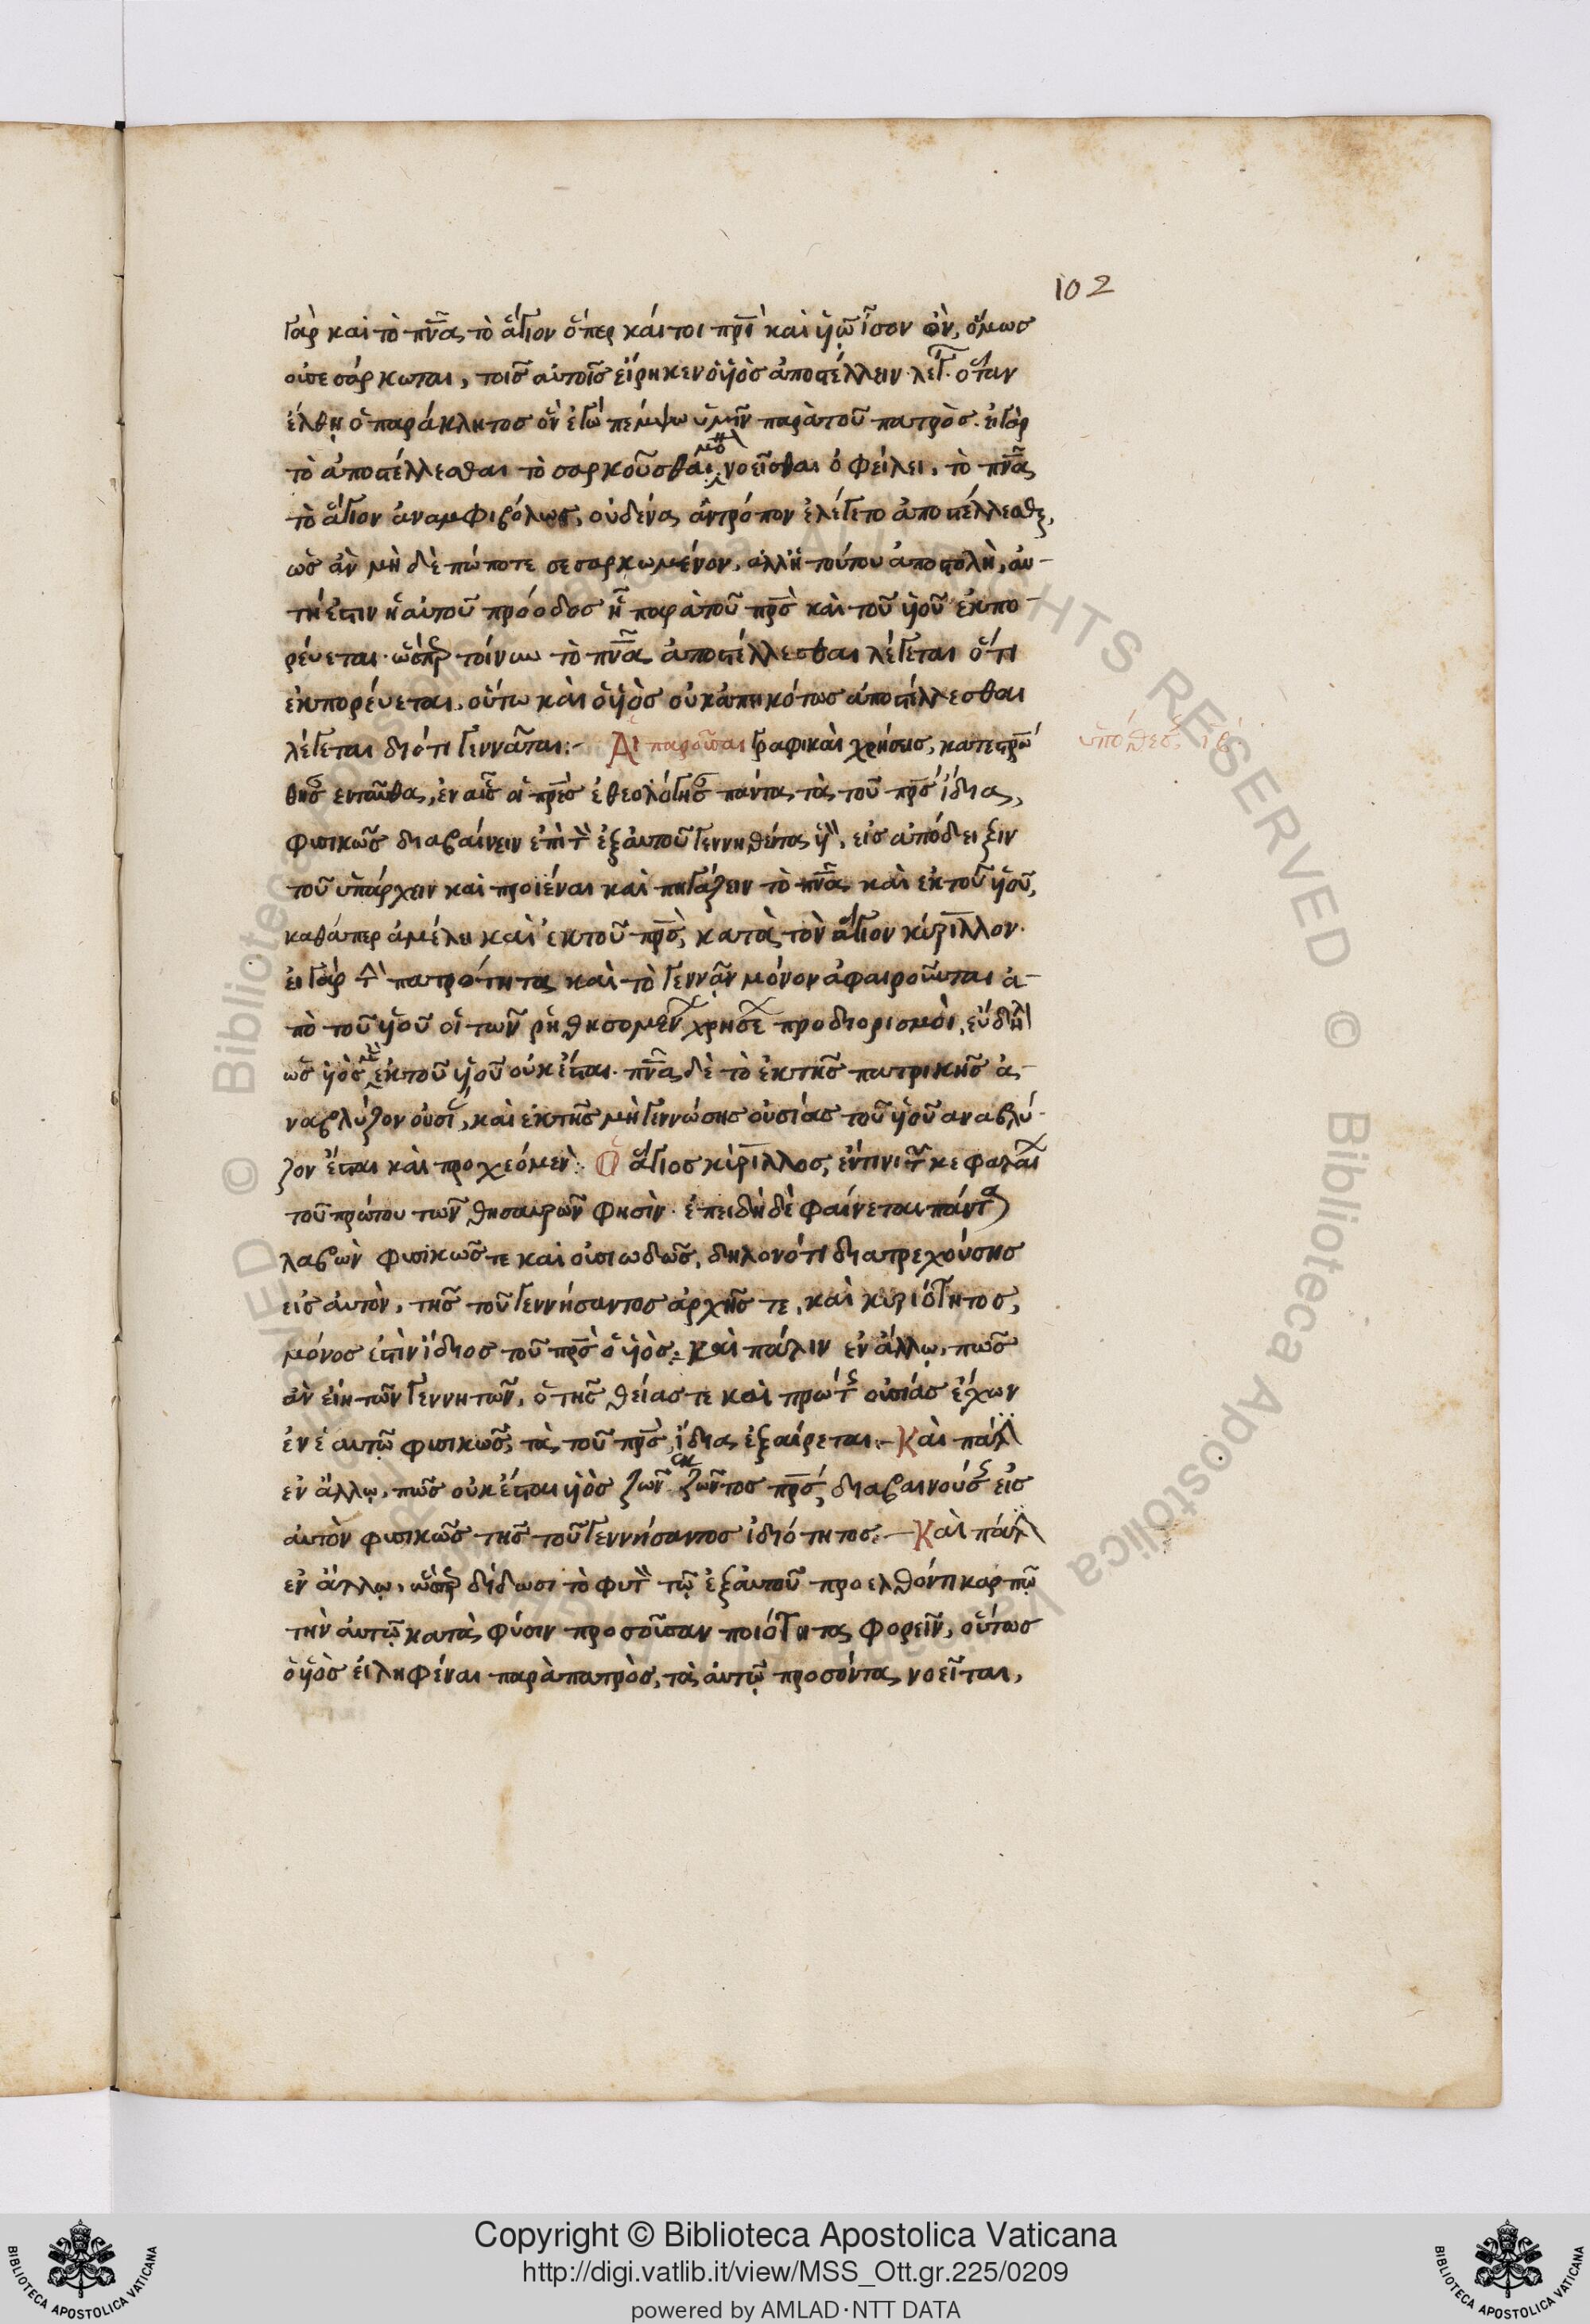 102
γὰρ καὶ τὸ πν̅α τὸ ἅγιον ὅπερ καίτοι πρ̅ὶ καὶ υἱῶ ἴσον ὂν, ὅμως
οὐ σεσάρκωται, τοῖς αὐτοῖς εἴρηκεν ὁ υἱὸς ἀποστέλλειν λέγ. ὅταν
ἔλθῃ ὁ παράκλητος ὃν ἐγὼ πέμψω ὑμῖν παρὰ τοῦ πατρὸς. εἰ γὰρ
τὸ ἀποστέλλεσθαι τὸ σαρκοῦσθαι νοεῖσθαι ὀφείλει, τὸ πν̅α
τὸ ἅγιον ἀναμφιβόλως, οὐδένα ἂν τρόπον ἐλέγετο ἀποστέλλεσθαι,
ὡς ἂν μὴ δὲ πώποτε σεσαρκωμένον, ἀλλ' ἡ τούτου ἀποστολὴ, αὐ-
τή ἐστιν ἡ αὐτοῦ πρόοδος ᾗ παρὰ τοῦ πρ̅ς καὶ τοῦ υἱοῦ ἐκπο-
ρεύεται. ὥσπερ τοίνυν τὸ πν̅α ἀποστέλλεσθαι λέγεται ὅτι
ἐκπορεύεται, οὕτω καὶ ὁ υἱὸς οὐκ ἀπεικότως ἀποστέλλεσθαι
λέγεται διότι γεννᾶται:- Αἱ παροῦσαι γραφικαὶ χρήσεις, κατεστρώ
ὑπόθεσ ιβ
θησ ἐνταῦθα, ἐν αἷς οἱ πρ̅ες ἐθεολόγησ πάντα τὰ τοῦ πρ̅ς ἴδια,
φυσικῶς διαβαίνειν ἐπὶ τὸν ἐξ αὐτοῦ γεννηθέντα υἱὸν, εἰς ἀπόδειξιν
τοῦ ὑπάρχειν καὶ προϊέναι καὶ πηγάζειν τὸ πν̅α καὶ ἐκ τοῦ υἱοῦ,
καθάπερ ἀμέλει καὶ ἐκ τοῦ πρ̅ς, κατὰ τὸν ἅγιον κύριλλον.
εἰ γὰρ τὴν πατρότητα καὶ τὸ γεννᾶν μόνον ἀφαιροῦνται ἀ-
πὸ τοῦ υἱοῦ οἱ τῶν ῥηθησομένων χρήσεων προδιορισμοὶ, εὔδηλ
ὡς υἱὸς μὲν ἐκ τοῦ υἱοῦ οὐκ ἔσται. πν̅α δὲ τὸ ἐκ τῆς πατρικῆς ἀ-
ναβλύζον οὐσίας, καὶ ἐκ τῆς μὴ γεννώσης οὐσίας τοῦ υἱοῦ αναβλύ-
ζον ἔσται καὶ προχεόμεν: Ὁ ἅγιος κύριλλος, ἐν τινι τῶν κεφαλαίων
τοῦ πρώτου τῶν θησαυρῶν φησὶν. ἐπειδὴ δὲ φαίνεται πάντα
λαβὼν φυσικῶς τε καὶ οὐσιωδῶς, δηλονότι διατρεχούσης
εἰς αὐτὸν, τῆς τοῦ γεννήσαντος ἀρχῆς τε, καὶ κυριότητος,
μόνος ἐστὶν ἴδιος τοῦ πρ̅ς ὁ υἱὸς:- Καὶ πάλιν ἐν ἄλλῳ, πῶς
ἂν εἴη τῶν γεννητῶν, ὁ τῆς θείας τε καὶ πρώτης οὐσίας ἔχων
ἐν ἑαυτῷ φυσικῶς, τὰ τοῦ πρ̅ς ἴδια ἐξαίρεται:- Καὶ πάλ
ἐν ἄλλῳ, πῶς οὐκ ἔσται υἱὸς ζῶν ἐκ ζῶντος πρ̅ς, διαβαινούσης εἰς
αὐτὸν φυσικῶς τῆς τοῦ γεννήσαντος ἰδιότητος:- Καὶ πάλ
ἐν ἄλλῳ, ὥσπερ δίδωσι τὸ φυτὸν τῷ ἐξ αὐτοῦ προελθόντι καρπῷ
τὴν αὐτῷ κατὰ φύσιν προσοῦσαν ποιότητα φορεῖν, οὕτως
ὁ υἱὸς εἰληφέναι παρὰ πατρὸς, τὰ αὐτῷ προσόντα νοεῖται,
Copyright © Biblioteca Apostolica Vaticana
http://digi.vatlib.it/view/MSS_Ott.gr.225/0209
powered by AMLAD·NTT DATA